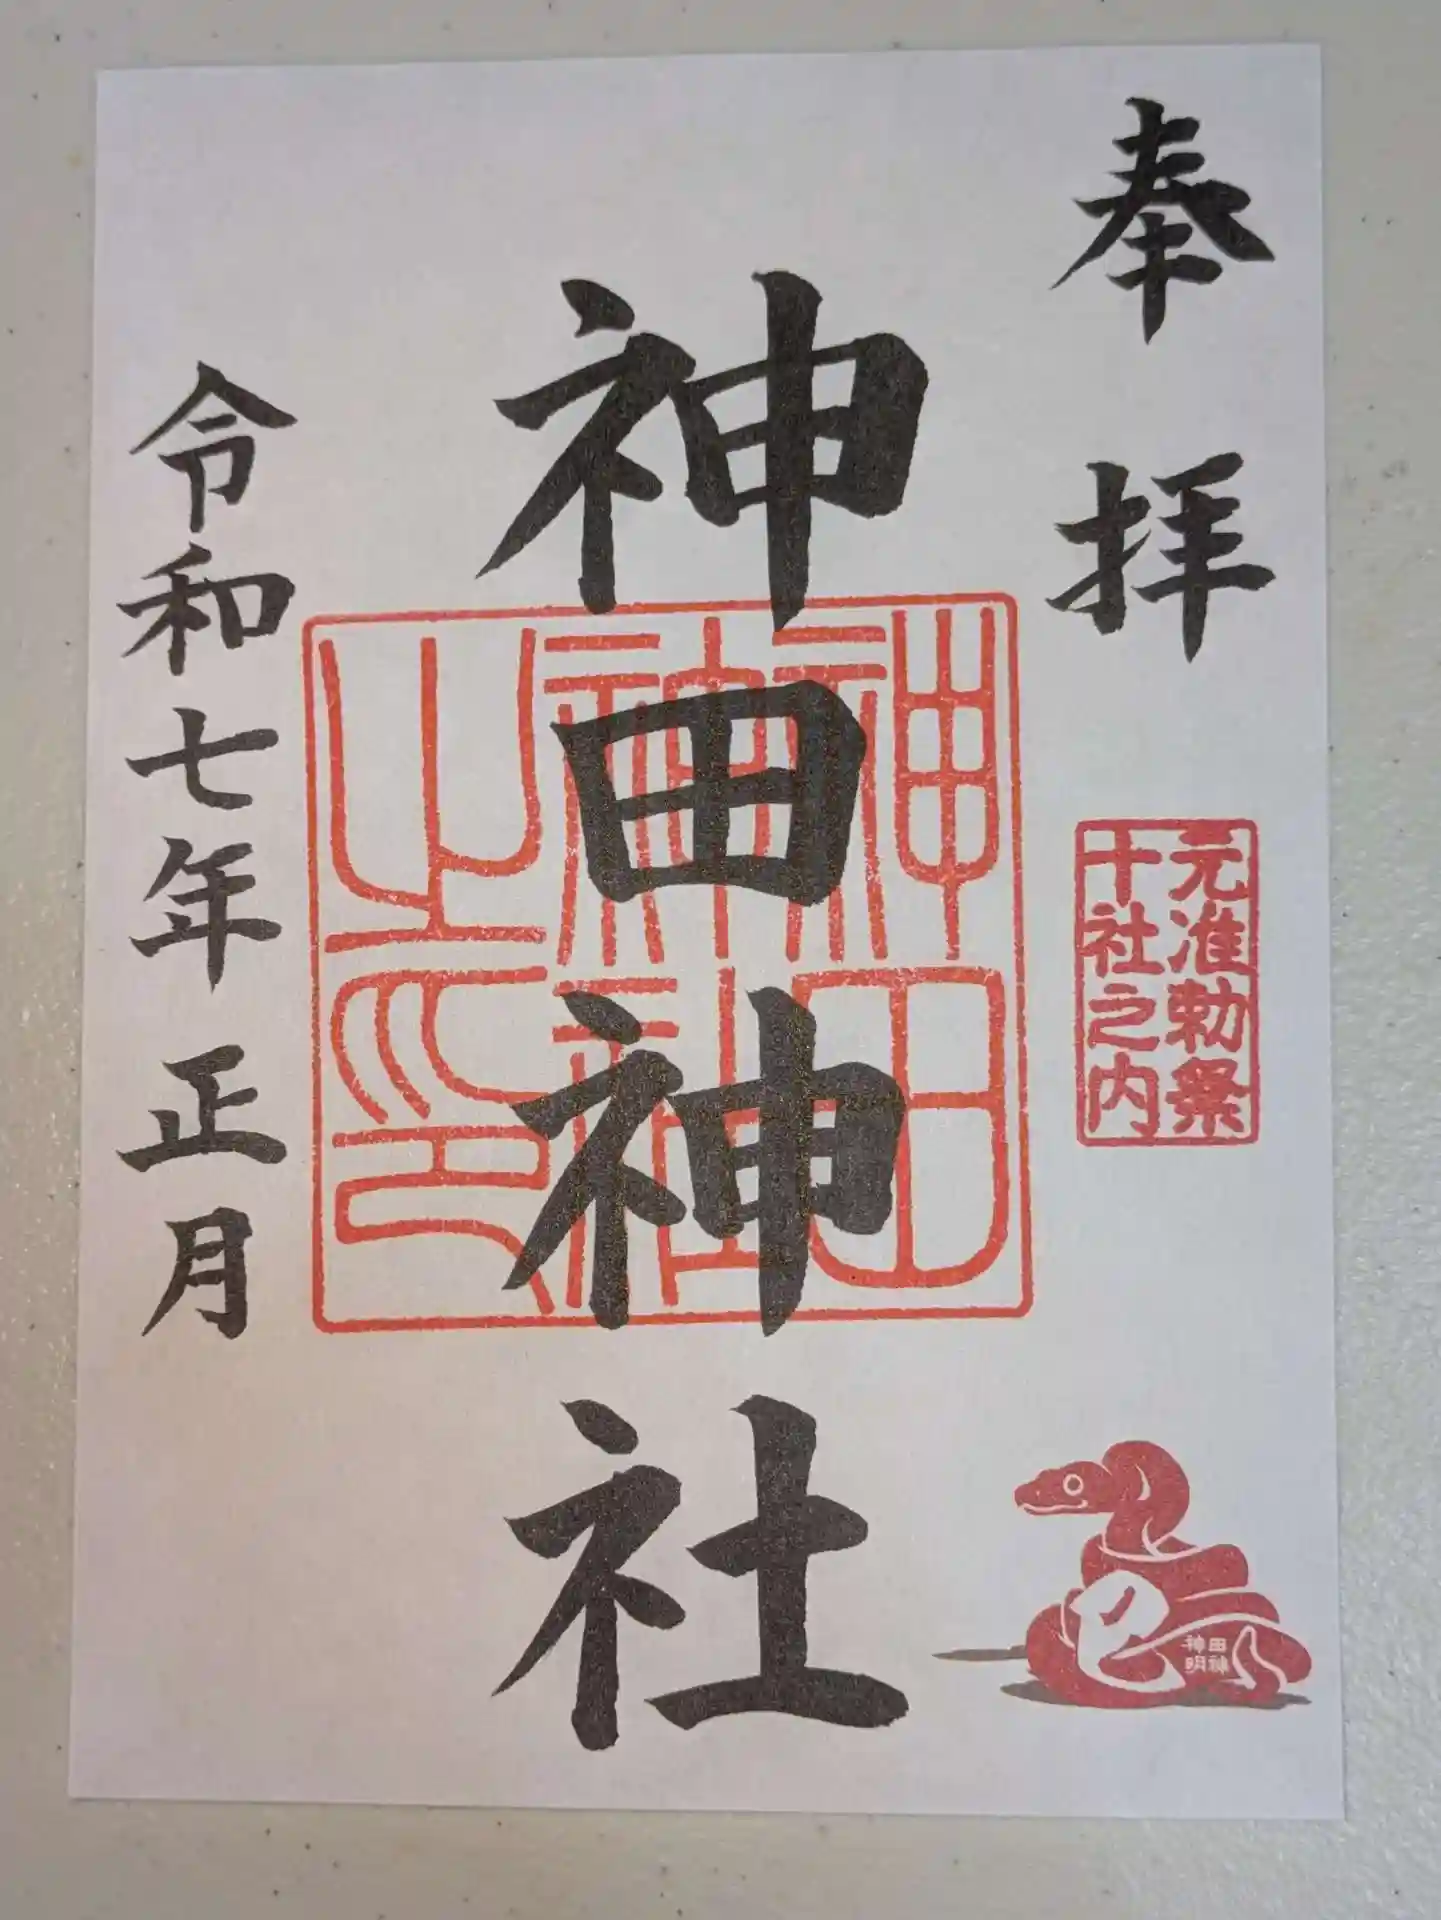 奉拝
元准勅祭
十社之内
巳
神田
神明
神田神社
神田
神社
之印
令和七年正月